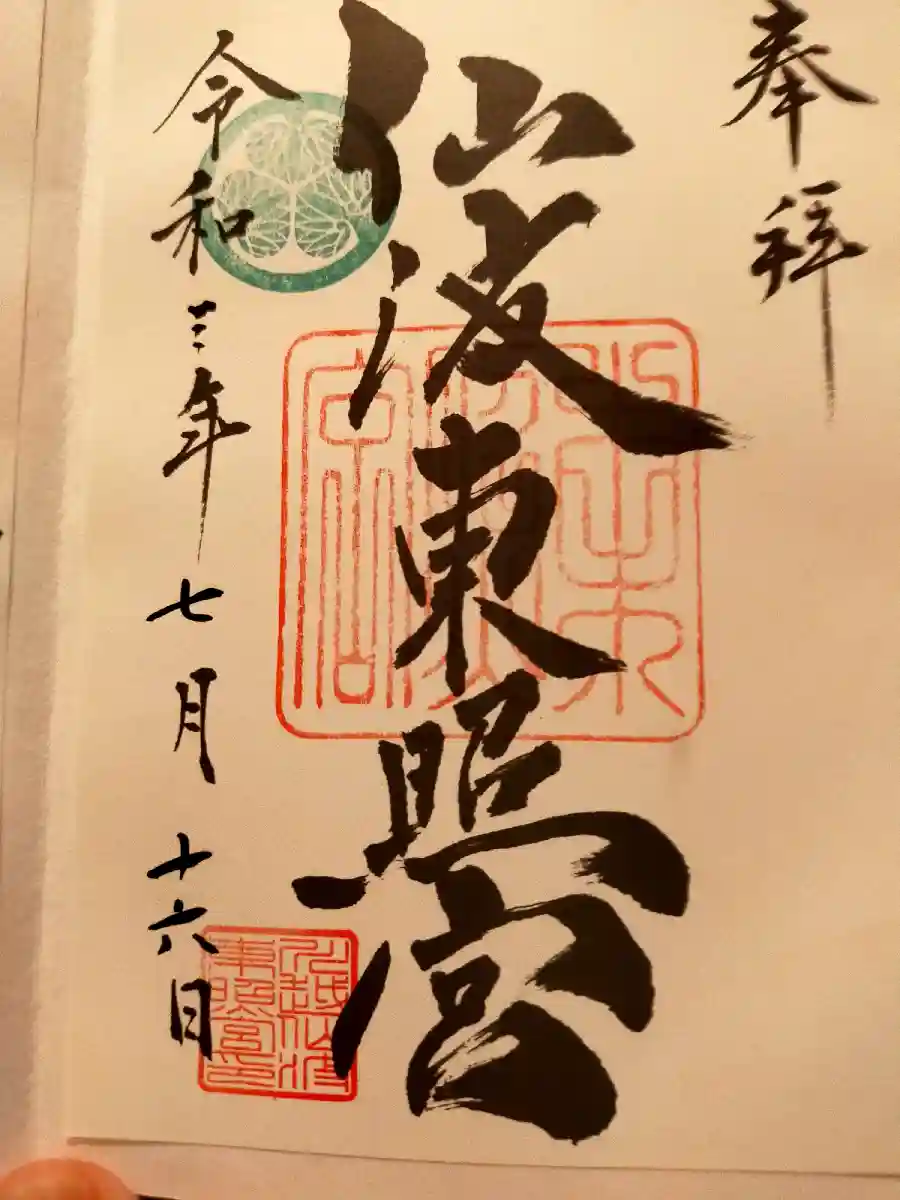 奉拝
仙波東照宮
令和三年七月十六日
川越仙波
東照宮印